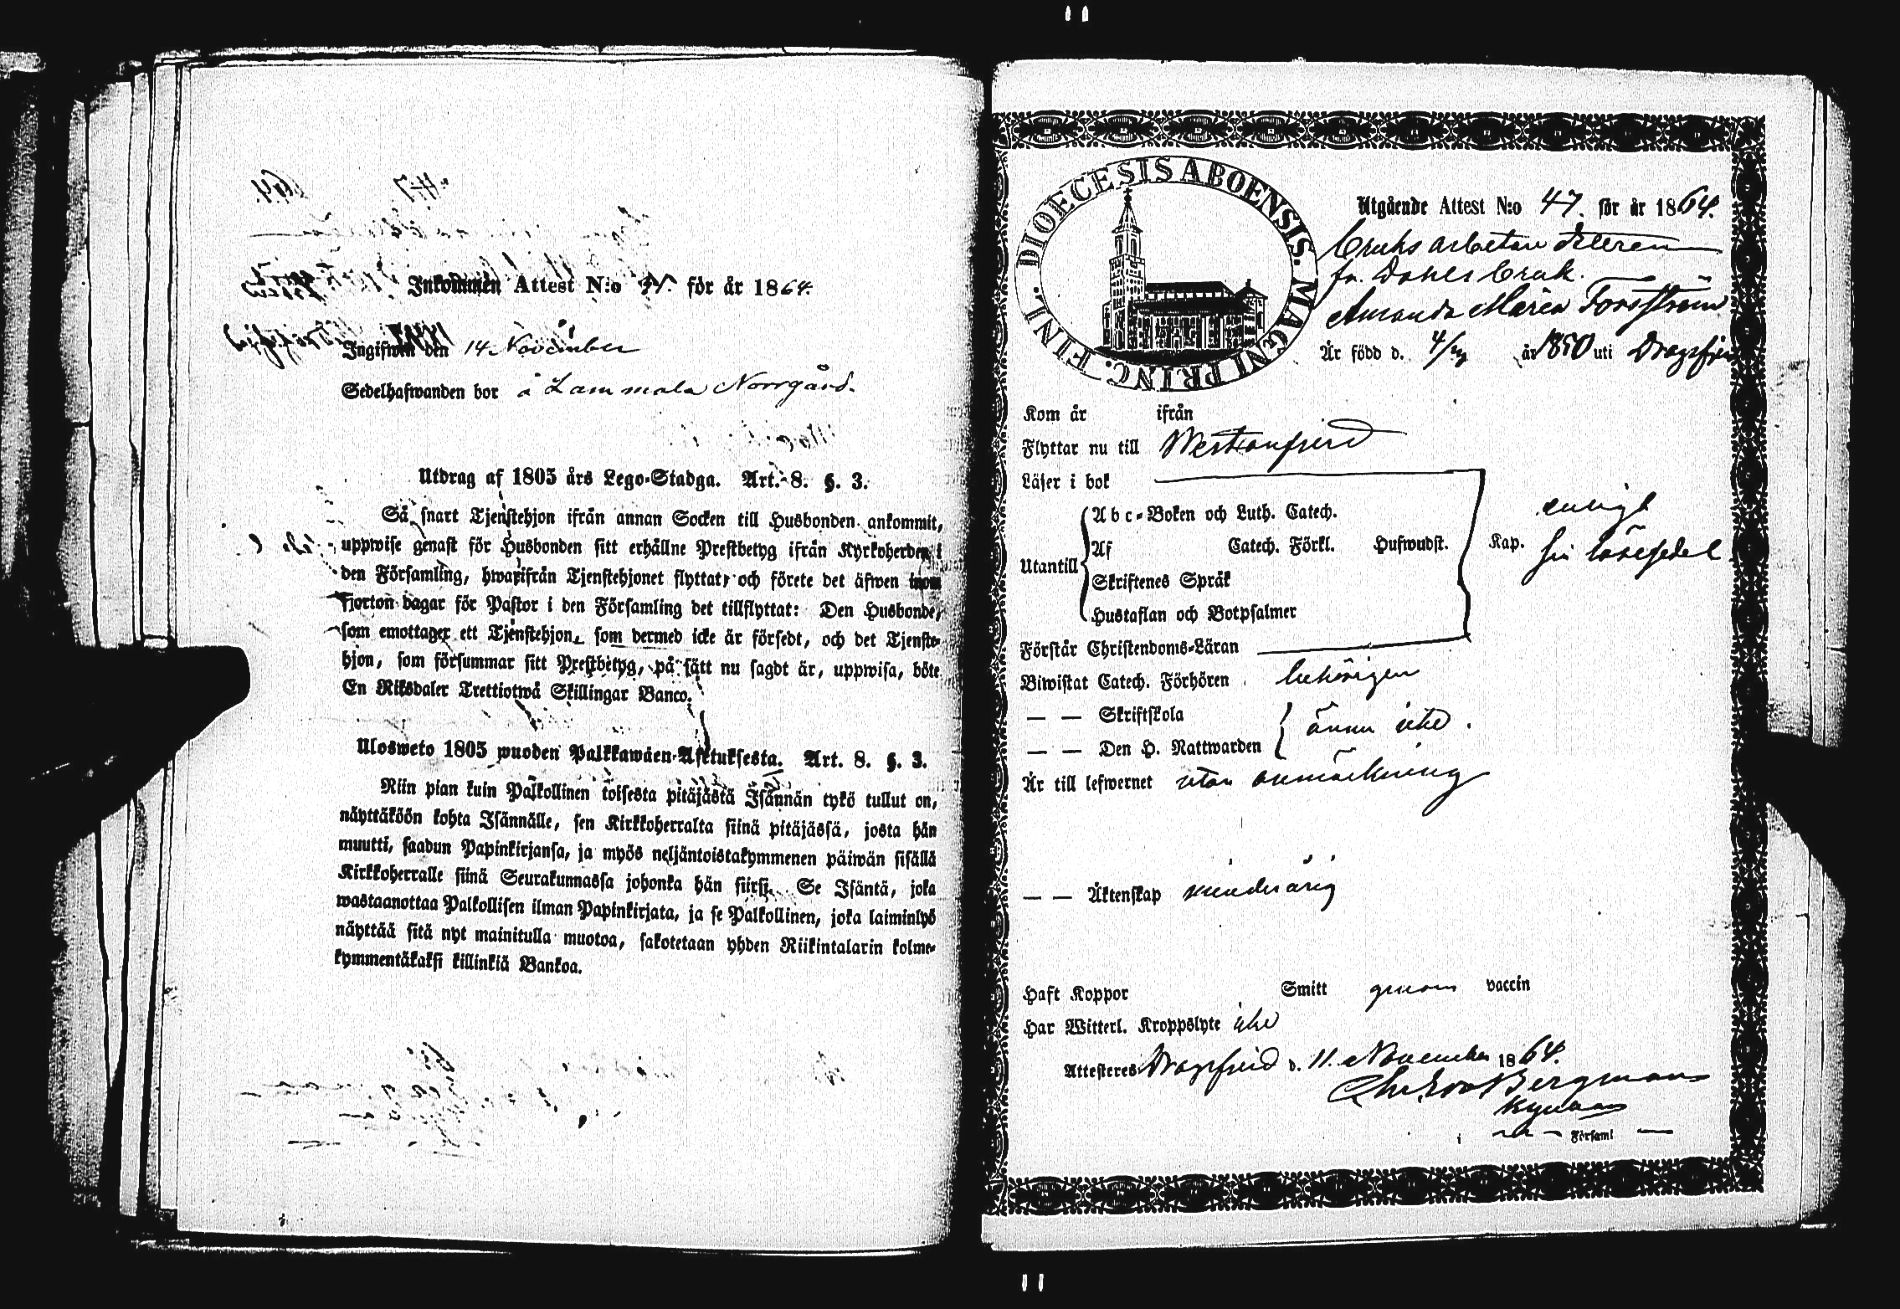 Inkommen Attest N:o för år 1864.
Ingifwen den 14 November
Sedelhafwanden bor å Lammala Norrgård.
Utdrag af 1805 års Lego-Stadga. Art. 8. §. 3.
Så snart Tjenstehjon ifrån annan Socken till Husbonden ankommit,
uppwise genast för Husbonden sitt erhållne Prestbetyg ifrån Kyrkoherden i
den Församling, hwarifrån Tjenstehjonet flyttat, och förete det äfwen inom
fjorton dagar för Pastor i den Församling det tillflyttat: Den Husbonde,
som emottager ett Tjenstehjon, som dermed icke är försedt, och det Tjenste-
hjon, som försummar sitt Prestbetyg, på sätt nu sagdt är, uppwisa, böte
En Riksdaler Trettiotwå Skillingar Banco.
Ulosweto 1805 wuoden Palkkawäen-Asetuksesta. Art. 8. §. 3.
Niin pian kuin Palkollinen toisesta pitäjästä Isännän tykö tullut on,
näyttäköön kohta Isännälle, sen Kirkkoherralta siinä pitäjässä, josta hän
muutti, saadun Papinkirjansa, ja myös neljäntoistakymmenen päiwän sisällä
Kirkkoherralle siinä Seurakunnassa johonka hän siirsi. Se Isäntä, joka
wastaanottaa Palkollisen ilman Papinkirjata, ja se Palkollinen, joka laiminlyö
näyttää sitä nyt mainitulla muotoa, sakotetaan yhden Riikintalarin kolme-
kymmentäkaksi killinkiä Bankoa.
DIOECESIS ABOENSIS. MAGNI PRINC. FINL.
Utgående Attest N:o 47. för år 1864.
Bruks arbetare
fr. Dahls bruk.
Amanda Maria Forsström
Är född d. 4/ år 1850 uti Dragsfjerd
Kom år ifrån
Flyttar nu till Westanfjerd
Läser i bok
Abc-Boken och Luth. Catech.
Af Catech. Förkl. Hufwudst. Kap. enligt
Utantill sin läsesedel
Skriftenes Språk
Hustaflan och Botpsalmer
Förstår Christendoms-Läran
Biwistat Catech. Förhören behörigen
— — Skriftskola
— — Den H. Nattwarden ännu icke.
Är till lefwernet utan anmärkning
— — Äktenskap minderårig
Haft Koppor Smitt genom vaccin
Har Witterl. Kroppslyte icke
Attesteras Dragsfjerd d. 11. November 1864.
Bergman
i Församl